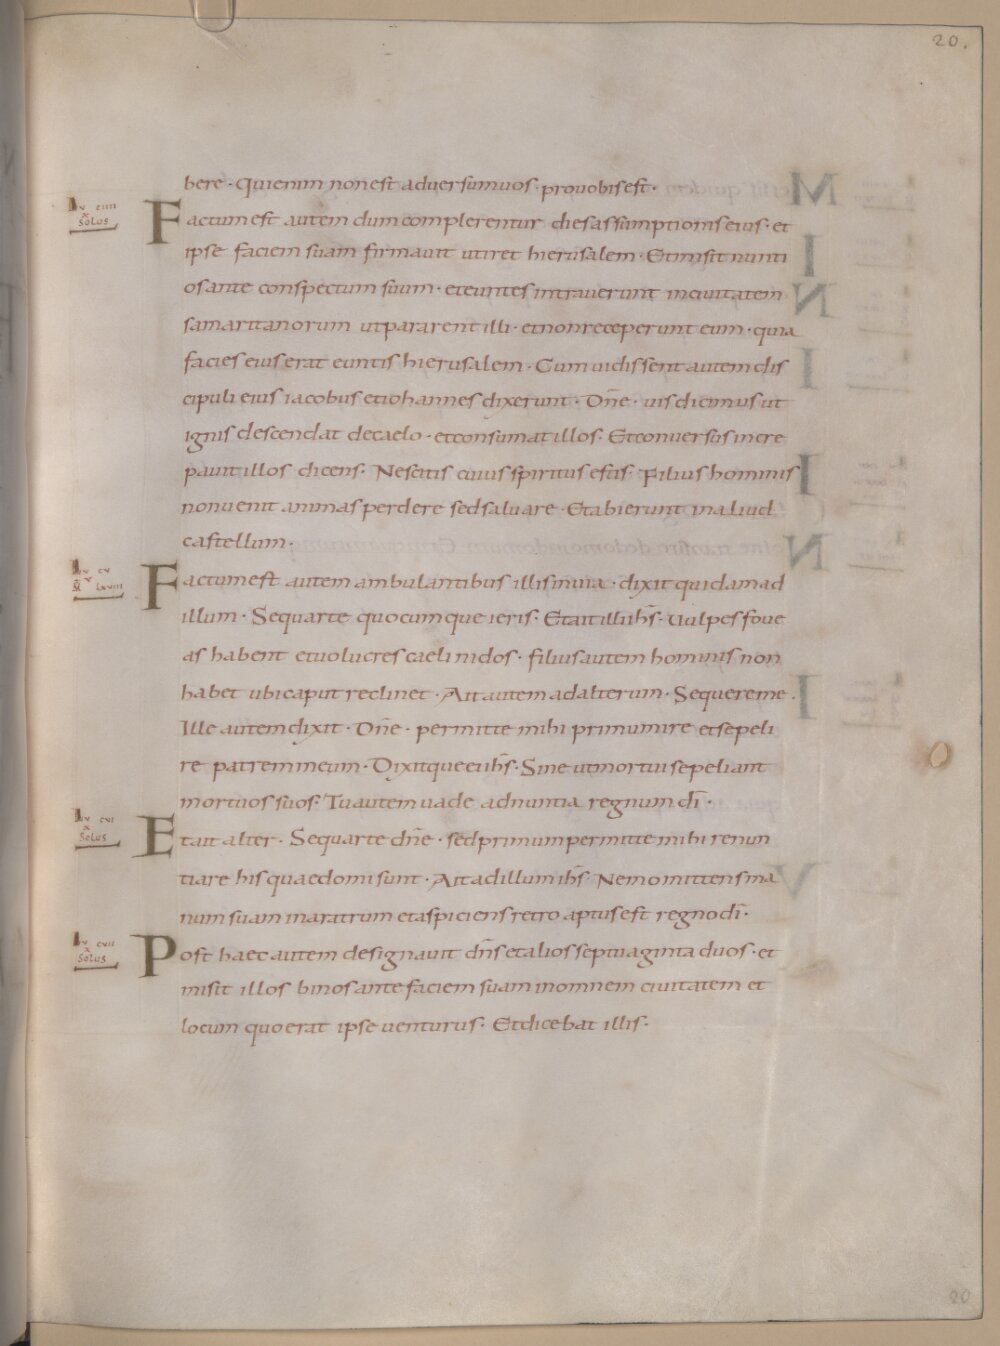 20.
bere · Qui enim non est aduersum uos · pro uobis est ·
Lv ciiii
x
solus
Factum est autem dum complerentur dies assumptionis eius · et
ipse faciem suam firmauit ut iret hierusalem · Et misit nunti
os ante conspectum suum · et euntes intrauerunt in ciuitatem
samaritanorum ut pararent illi · et non receperunt eum · quia
facies eius erat euntis hierusalem · Cum uidissent autem dis
cipuli eius iacobus et iohannes dixerunt · Dn̄e · uis dicimus ut
ignis descendat de caelo · et consumat illos · Et conuersus incre
pauit illos dicens · Nescitis cuius spiritus estis · Filius hominis
non uenit animas perdere sed saluare · Et abierunt in aliud
castellum ·
Lv cv
v
lxviii
Factum est autem ambulantibus illis in uia · dixit quidam ad
illum · Sequar te quocumque ieris · Et ait illi ih̄s · Uulpes foue
as habent et uolucres caeli nidos · filius autem hominis non
habet ubi caput reclinet · Ait autem ad alterum · Sequere me ·
Ille autem dixit · Dn̄e · permitte mihi primum ire et sepeli
re patrem meum · Dixitque ei ih̄s · Sine ut mortui sepeliant
mortuos suos · Tu autem uade adnuntia regnum dī ·
Lv cvi
x
Solus
Et ait alter · Sequar te dn̄e · sed primum permitte mihi renun
tiare his quae domi sunt · Ait ad illum ih̄s Nemo mittens ma
num suam in aratrum et aspiciens retro aptus est regno dī ·
Lv cvii
x
Solus
Post haec autem designauit dn̄s et alios septuaginta duos · et
misit illos binos ante faciem suam in omnem ciuitatem et
locum quo erat ipse uenturus · Et dicebat illis ·
20